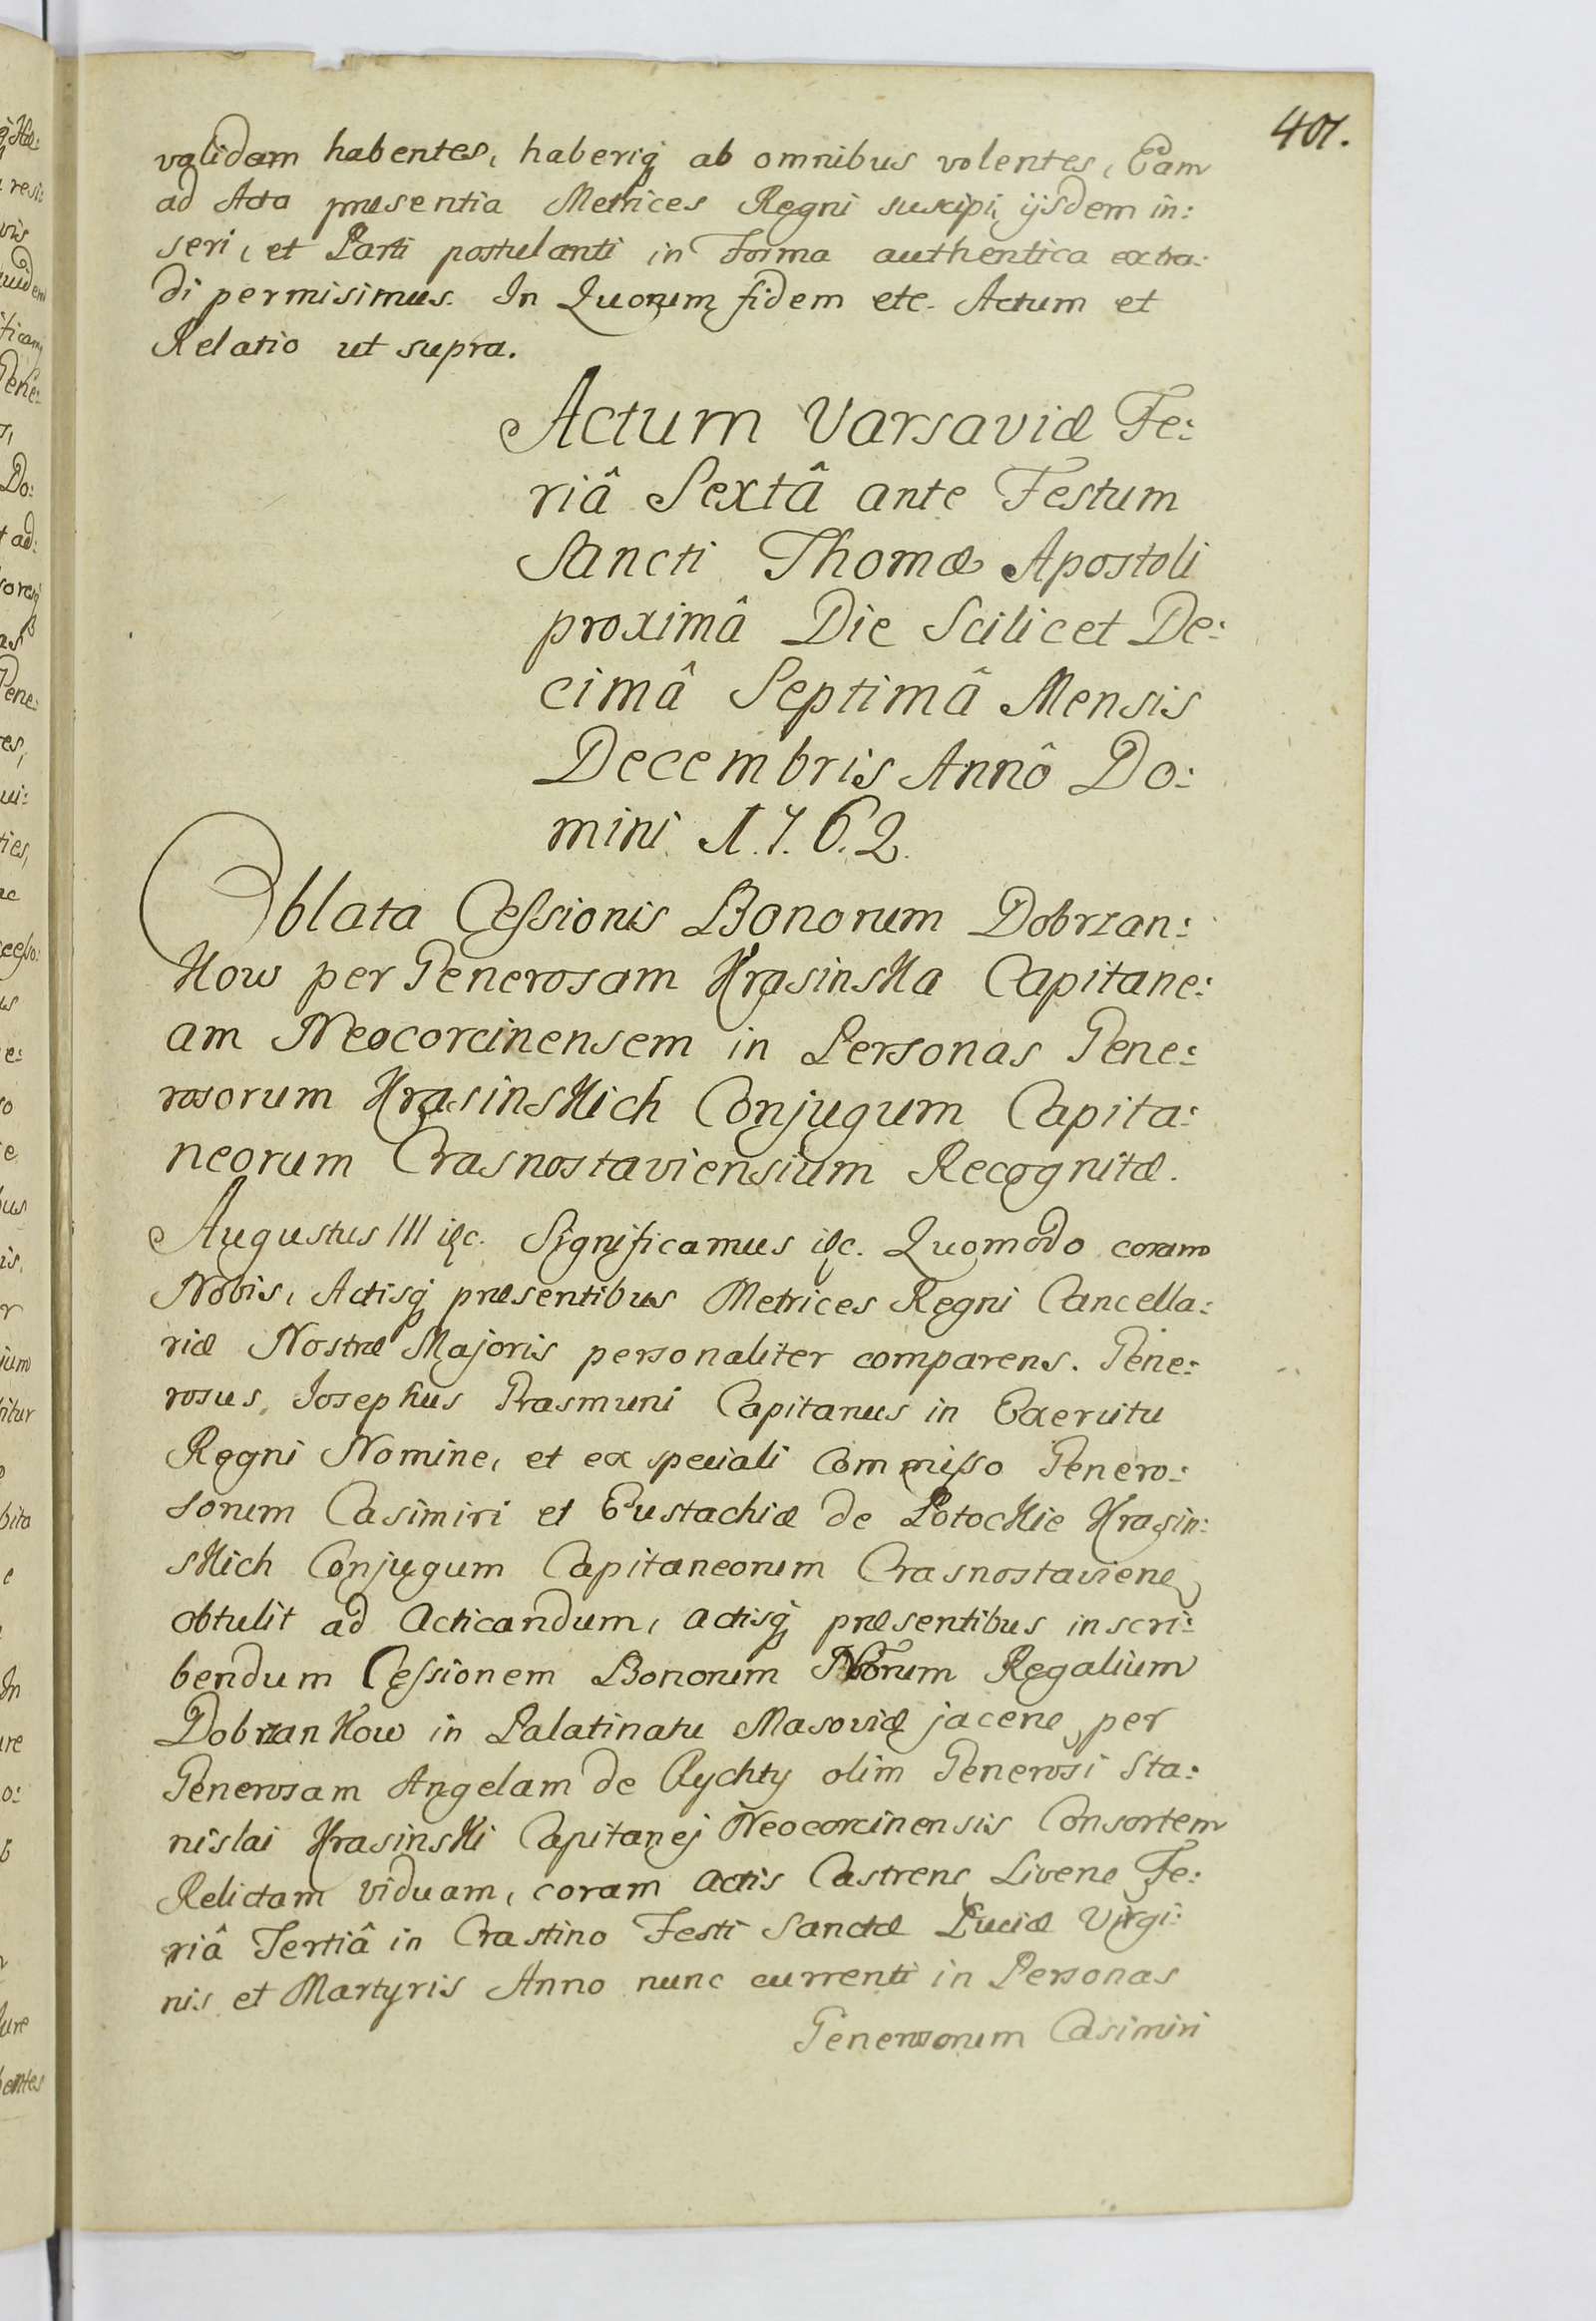 401.
validam habentes, haberiq́ ab omnibus volentes, Eam
ad Acta præsentia Metrices Regni suscipi, ijsdem in:
seri, et Parti postulanti in Forma authentica extra:
di permisimus. In Quorum fidem etc. Actum et
Relatio ut supra.
Actum Varsaviæ Fe:
riâ Sextâ ante Festum
Sancti Thomæ Apostoli
proximâ Die Scilicet De:
cimâ Septimâ Mensis
Decembris Annô Do:
mini 1.7.6.2.
Oblata Cessionis Bonorum Dobrzan:
kow per Generosam Krasinska Capitane:
am Neocorcinensem in Personas Gene:
rosorum Krasinskich Conjugum Capita:
neorum Crasnostaviensium Recognitæ.
Augustus III etc. Significamus etc. Quomodo coram
Nobis, Actisq́ præsentibus Metrices Regni Cancella:
riæ Nostræ Majoris personaliter comparens. Gene:
rosus, Josephus Grasmuni Capitanus in Exercitu
Regni Nomine, et ex speciali Commisso Genero:
sorum Casimiri et Eustachiæ de Potockie Krasin:
skich Conjugum Capitaneorum Crasnostaviene
obtulit ad Acticandum, actisq́ præsentibus inscri:
bendum Cessionem Bonorum Nrorum Regalium
Dobrzankow in Palatinatu Masoviæ jacene per
Generosam Angelam de Rychty olim Generosi Sta:
nislai Krasinski Capitanej Neocorcinensis Consortem
Relictam viduam, coram actis Castrens Livene Fe:
riâ Tertiâ in Crastino Festi Sanctæ Luciæ Virgi:
nis et Martyris Anno nunc currenti in Personas
Generosorum Casimiri